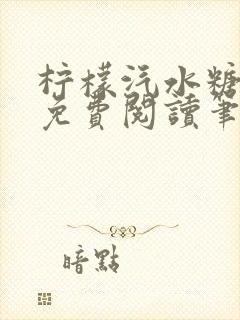 柠檬汽水糖
免費閱讀筆
暗點